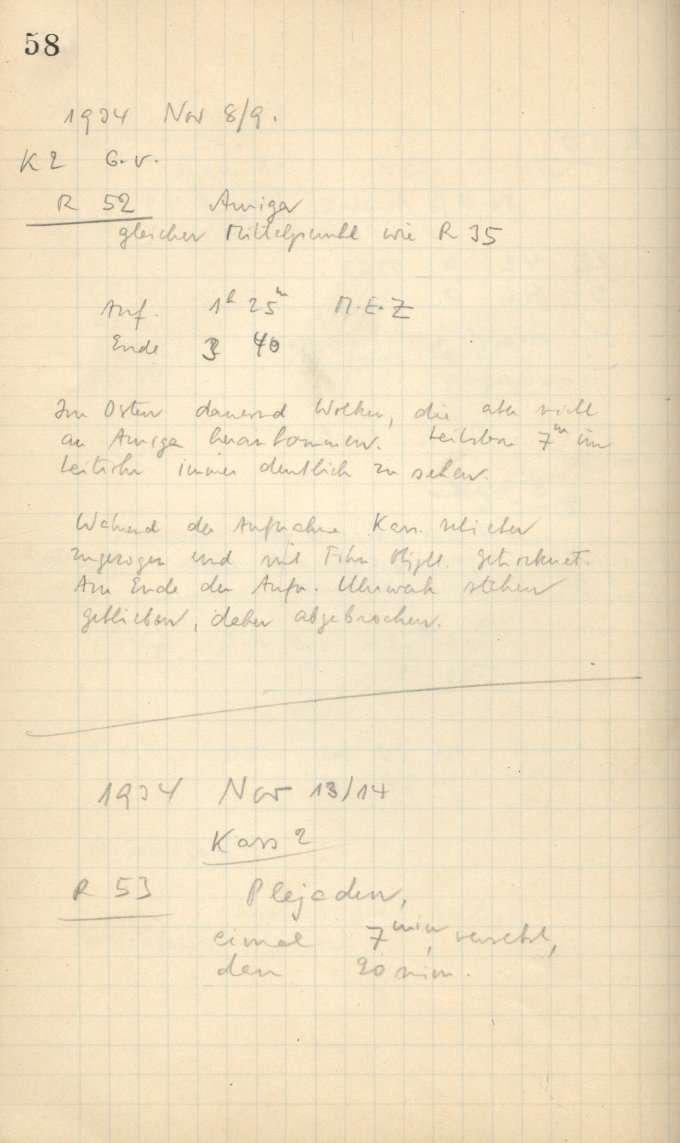 58
1934 Nov 8/9.
K2 G.v.
R 52 Auriga
gleicher Mittelpunkt wie R 35
Anf. 1h 25m M.E.Z
Ende 3 40
Im Osten dauernd Wolken, die aber nicht
an Auriga herankommen. Leitstern 7m im
Leitrohr immer deutlich zu sehen.
Während der Aufnahme Kass.
zugezogen und mit getrocknet.
Am Ende der Aufn. Uhrwerk stehen
geblieben, daher abgebrochen.
1934 Nov 13/14
Kass 2
R 53 Plejaden,
einmal 7min, versetzt,
dann 20 min.